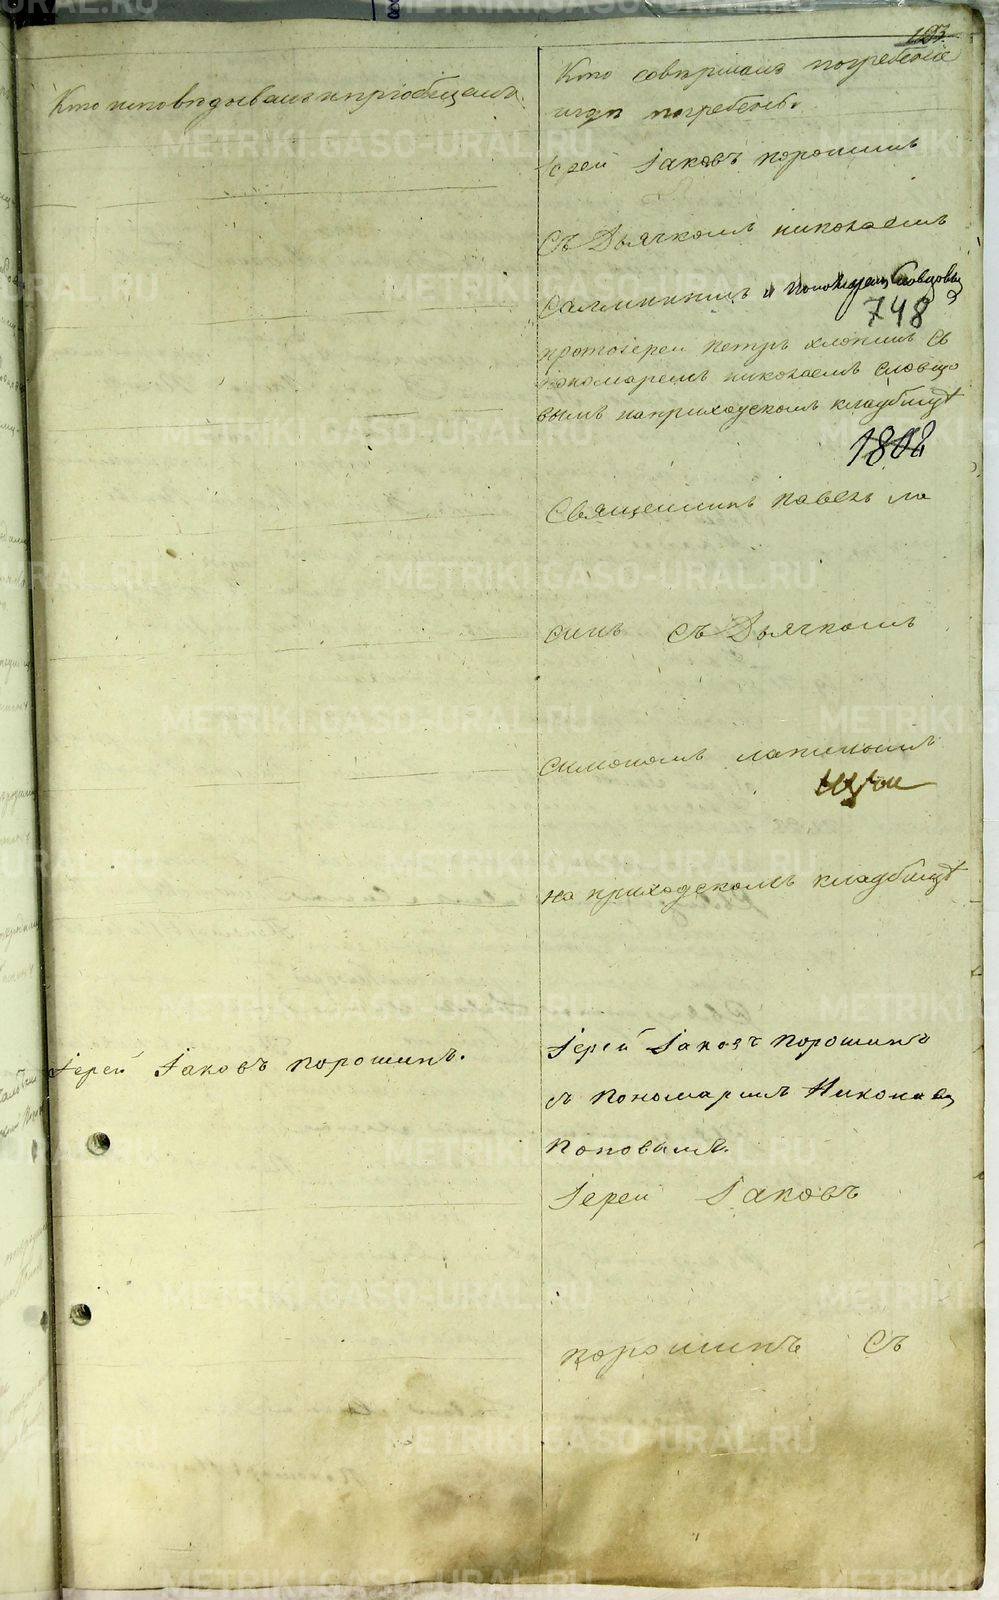 127.
Кто исповѣдывалъ и пріобщалъ.
Кто совершалъ погребеніе
и гдѣ погребены.
Іерей Іаковъ Порошинъ
Съ Дьячкомъ Николаемъ
и Пономаремъ Словцовы
748
протоіерей Петръ Хлопинъ Съ
пономаремъ Николаемъ Словцо
вымъ на приходскомъ кладбищѣ
1802
Священникъ Павелъ Ла
Съ Дьячкомъ
Симономъ Лапинымъ
на приходскомъ кладбищѣ
Іерей Іаковъ Порошинъ.
Іерей Іаковъ Порошинъ
съ Пономаремъ
Поповымъ.
Іерей Іаковъ
Порошинъ Съ
METRIKI.GASO-URAL.RU